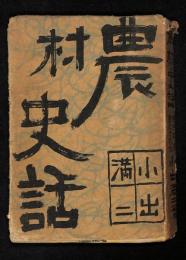 農村史話
小出
満二